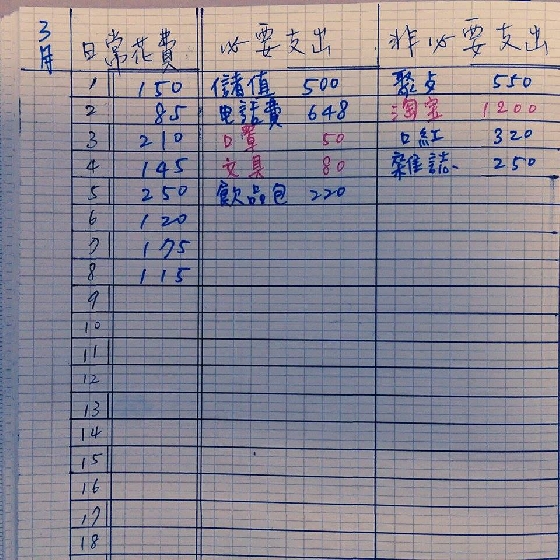 3月 日常花費 必要支出 非必要支出
1 150 儲值 500 聚占 550
2 85 电話費 648 淘宝 1200
3 210 口罩 50 口紅 320
4 145 文具 80 雜誌 250
5 250 飲品包 220
6 120
7 175
8 115
9
10
11
12
13
14
15
16
17
18